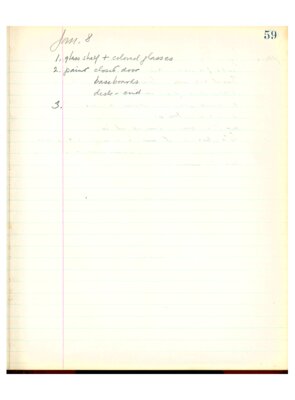 59
Jan. 8
1. glass shelf + colored glasses
2. paint closet door
baseboards
desk end
3.